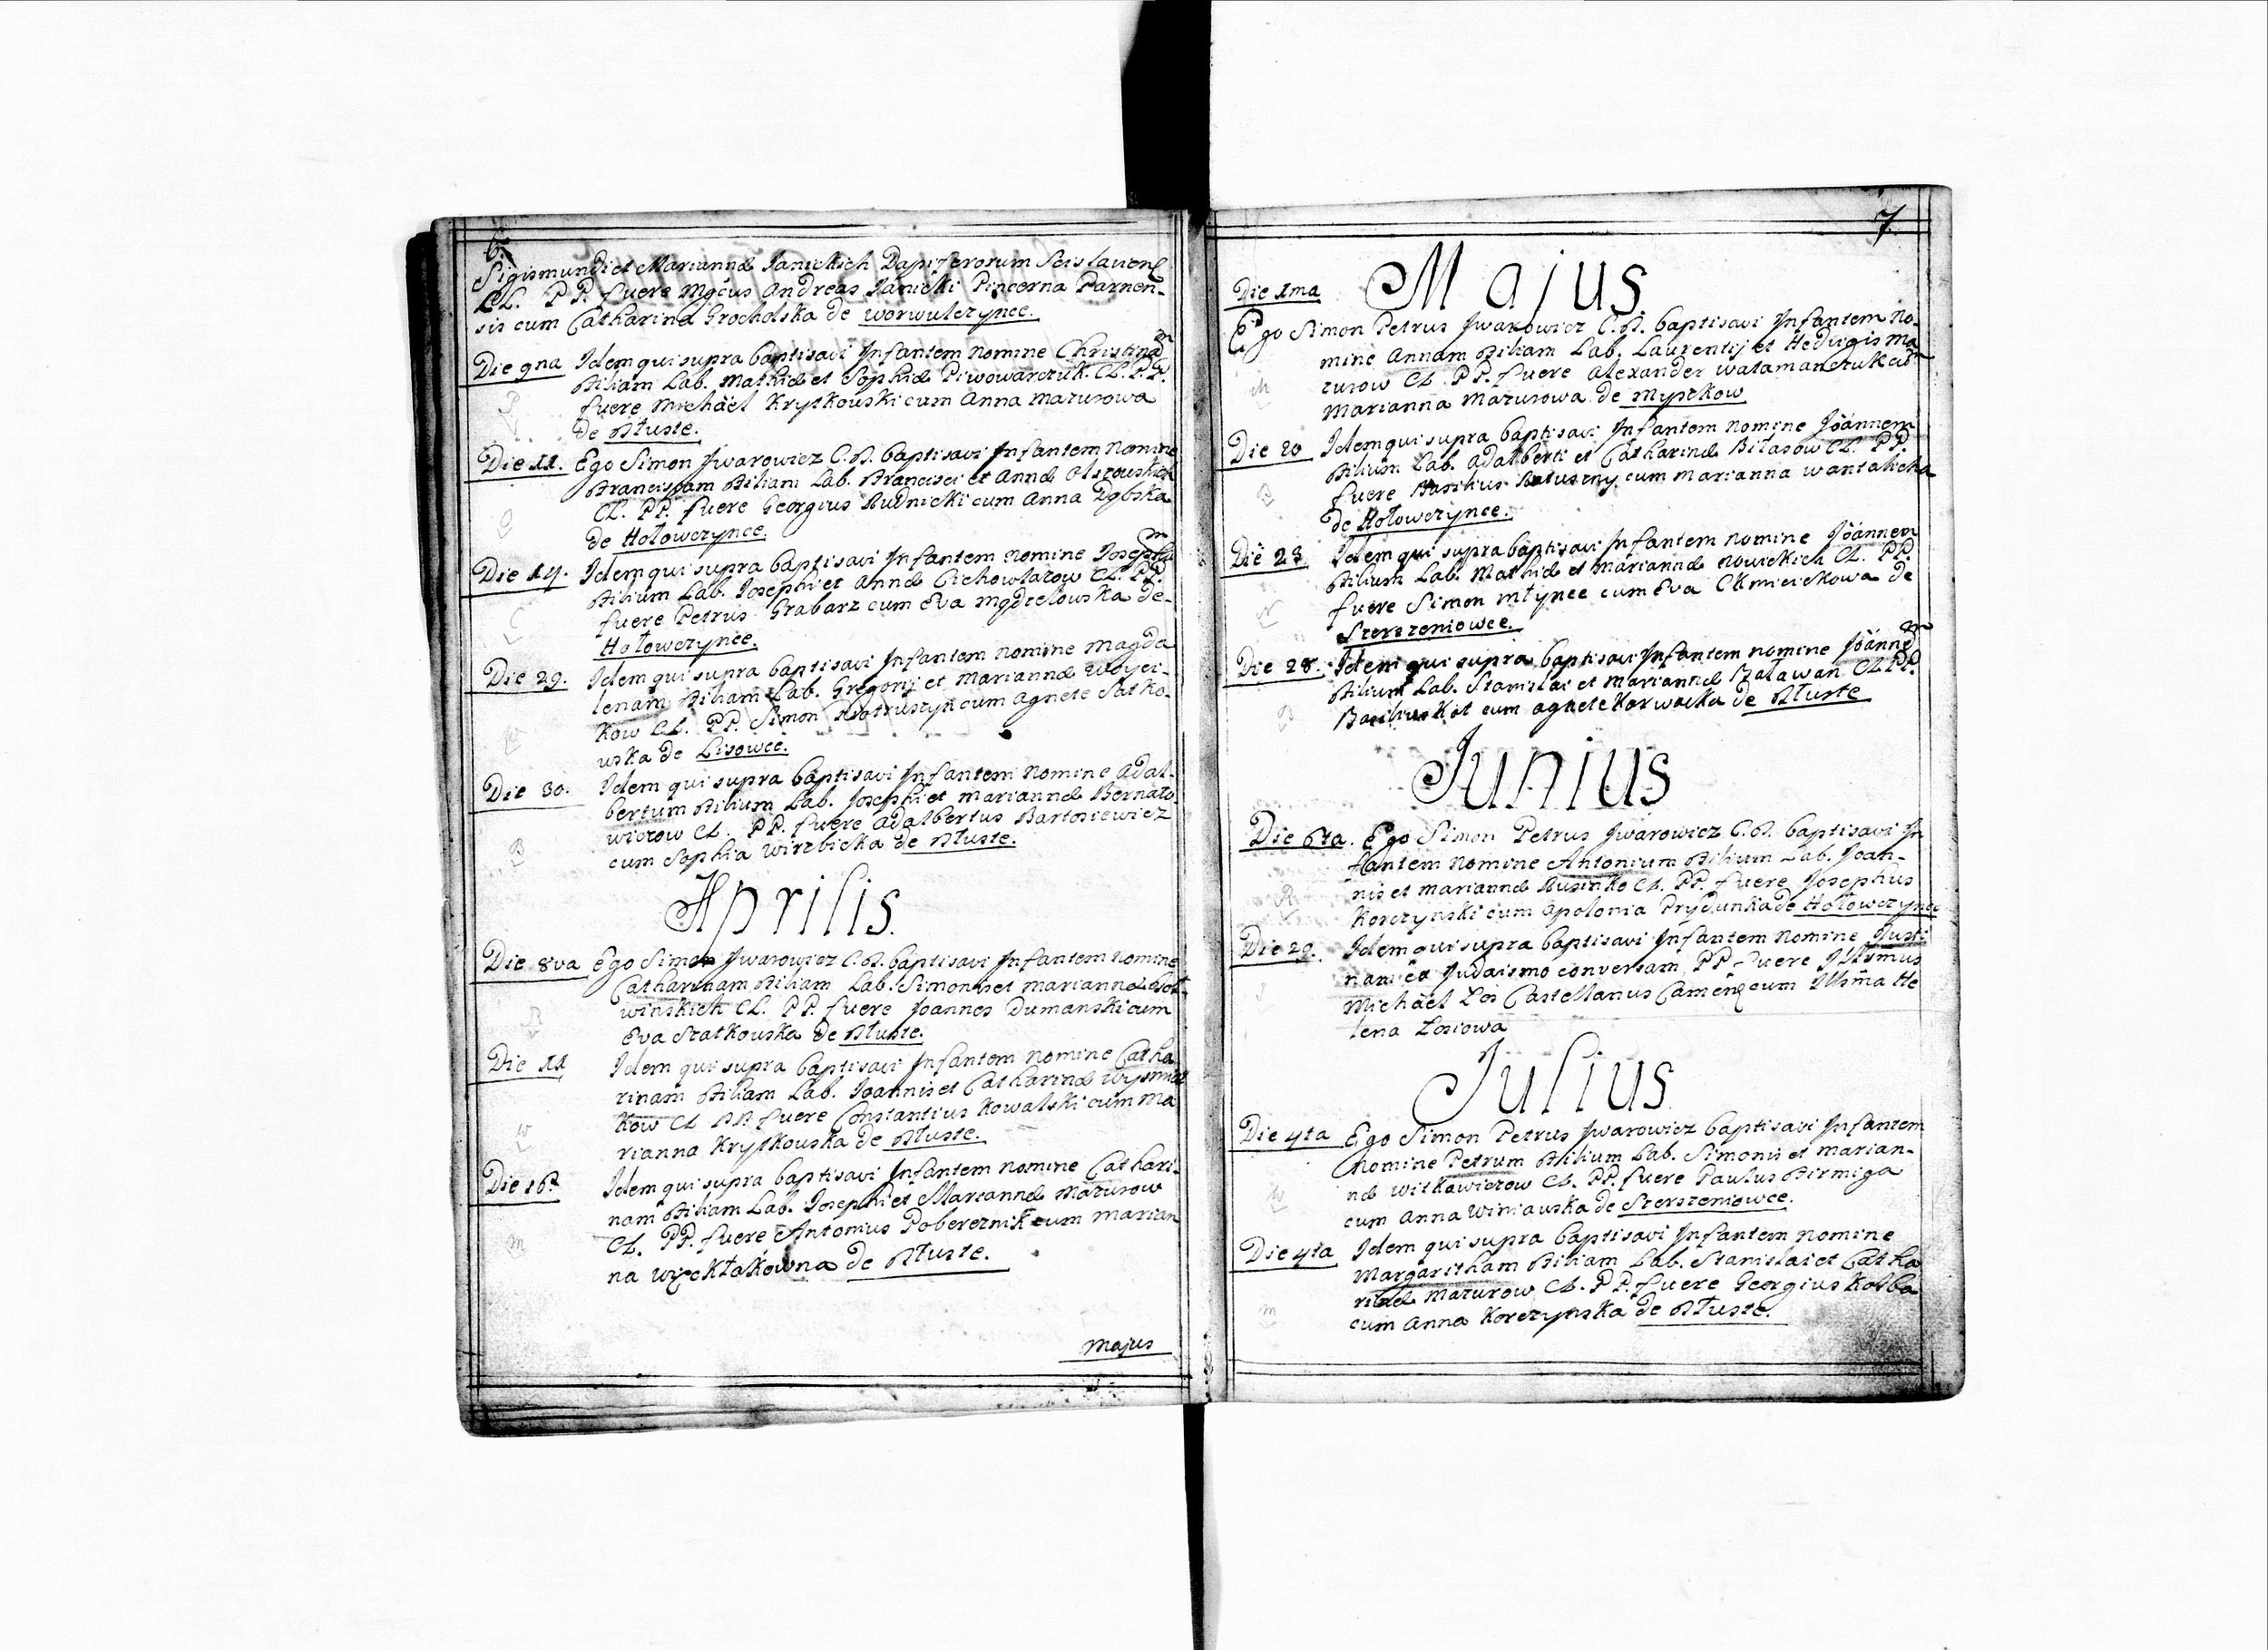 6.
Sigismundi et Mariannæ Janickich Dapiferorum
LL. PP. fuere Mgcus Andreas Janicki Pincerna Parnen-
sis cum Catharina Grocholska de Worwulczynce.
Die 9na Idem qui supra baptisavi Infantem nomine Christinam
Filiam Lab. Mathiæ et Sophiæ Piwowarczuk. LL. PP.
P fuere Michäel Krystkouski cum Anna Mazurowa
de Tłuste.
Die 11. Ego Simon Jwarowicz C.T. baptisavi Infantem Nomine
Franciscam Filiam Lab. Francisci et Annæ Olszouskich
LL. PP. fuere Georgius Rudnicki cum Anna Dąbska
O de Hołowczynce.
Die 14. Idem qui supra baptisavi Infantem nomine Josephum
Filium Lab. Josephi et Annæ Cichowlazow LL. PP.
C fuere Petrus Grabarz cum Eva Mądrelouska de
Hołowczynce.
Die 29. Idem qui supra baptisavi Infantem nomine Magda
lenam Filiam Lab. Gregorij et Mariannæ Woyci-
kow LL. PP. Simon cum Agnete Satko-
uska de Lisowce.
Die 30. Idem qui supra baptisavi Infantem nomine Adal-
bertum Filium Lab. Josephi et Mariannæ Bernato-
wiczow LL. PP. fuere Adalbertus Bartosiewicz
B cum Sophia Wirzbicka de Tłuste.
Aprilis.
Die 8va Ego Simon Jwarowicz C.T. baptisavi Infantem nomine
Catharinam Filiam Lab. Simonis et Mariannæ
winskich LL. PP. fuere Joannes Dumanski cum
Eva Szatkouska de Tłuste.
Die 11 Idem qui supra baptisavi Infantem nomine Catha
rinam Filiam Lab. Joannis et Catharinæ
kow LL PP fuere Constantius Kowalski cum Ma
W rianna Krystkouska de Tłuste.
Die 16. Idem qui supra baptisavi Infantem nomine Cathari-
nam Filiam Lab. Josephi et Mariannæ Mazurow
M LL. PP. fuere Antonius Pobereznik cum Marian
na Więcktakowna de Tłuste.
Majus
7.
Majus
Die 1ma
Ego Simon Petrus Jwarowicz C.T. baptisavi Infantem No-
mine Annam Filiam Lab. Laurentij et Hedvigis Ma-
M zurow LL. PP. fuere Alexander Watamanczuk cum
Marianna Mazurowa de Myszkow
Die 20 Idem qui supra baptisavi Infantem nomine Joannem
Filium Lab. Adalberti et Catharinæ Biłasow LL. PP.
B fuere Basilius cum Marianna Wantalicha
de Hołowczynce.
Die 23 Idem qui supra baptisavi Infantem nomine Joannem
Filium Lab. Mathiæ et Mariannæ Nowickich LL. PP.
N fuere Simon Młynec cum Eva Ckmicickowa de
Szerszeniowce.
Die 28. Idem qui supra baptisavi Infantem nomine Joannem
Filium Lab. Stanislai et Mariannæ Baławan LL. PP.
B Basilius Kot cum Agnete Karwacka de Tłuste
Junius
Die 6ta. Ego Simon Petrus Jwarowicz C.T. baptisavi In
fantem nomine Antonium Filium Lab. Joan-
R nis et Mariannæ Rusinko LL. PP. fuere Josephus
Korczynski cum Apolonia Prydunka de Hołowczynce
Die 29. Idem qui supra baptisavi Infantem nomine Justi
nam ex Judaismo conversam PP fuere Illsmus
Michäel Łoś Castellanus cum Illsma He
lena Łosiowa
Julius
Die 4ta Ego Simon Petrus Jwarowicz baptisavi Infantem
nomine Petrum Filium Lab. Simonis et Marian-
W næ Witkawiczow LL. PP. fuere Paulus Firmiga
cum Anna Winiauska de Szerszeniowce.
Die 4ta Idem qui supra baptisavi Infantem nomine
Margaritham Filiam Lab. Stanislai et Catha
M rinæ Mazurow LL. PP. fuere Georgius Kolba
cum Anna Korczynska de Tłuste.